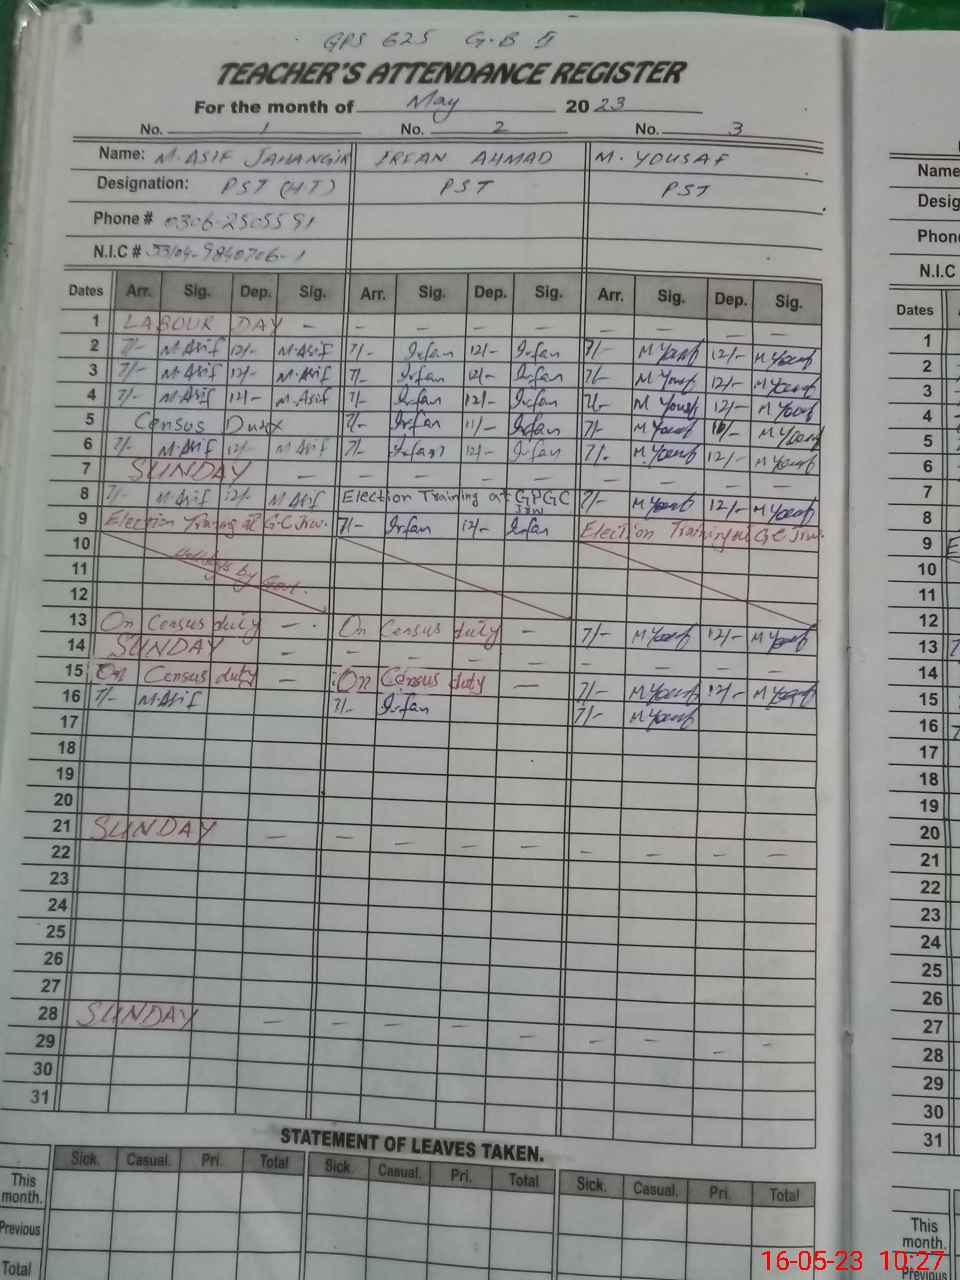 GPS 625 G.B II
TEACHER'S ATTENDANCE REGISTER
For the month of May 2023
No. 1 No. 2 No. 3
Name: M. ASIF JAHANGIR IRFAN AHMAD M. YOUSAF
Designation: PST (HT) PST PST
Phone # 0306-2505591
N.I.C #
Dates Arr. Sig. Dep. Sig. Arr. Sig. Dep. Sig. Arr. Sig. Dep. Sig.
1 LABOUR DAY — — — — — — — — —
2 7/- M.Asif 12/- M.Asif 7/- Irfan 12/- Irfan 7/- M Yousf 12/- M Yousf
3 7/- M.Asif 12/- M.Asif 7/- Irfan 12/- Irfan 7/- M Yousf 12/- M Yousf
4 7/- M.Asif 12/- M.Asif 7/- Irfan 12/- Irfan 7/- M Yousf 12/- M Yousf
5 Census Duty 7/- Irfan 11/- Irfan 7/- M Yousf M Yousf
6 7/- M.Asif 12/- M.Asif 7/- Irfan 12/- Irfan 7/- M Yousf 12/- M Yousf
7 SUNDAY — — — — — — — — —
8 7/- M.Asif 12/- M.Asif Election Training at GPGC JRW 7/- M Yousf 12/- M Yousf
9 Election Training at G.C Jrw. 7/- Irfan 12/- Irfan Election Training at G C Jrw.
10
11 Holidays by Govt.
12
13 On Census duty — On Census duty — 7/- M Yousf 12/- M Yousf
14 SUNDAY — — — — — — — — —
15 On Census duty — On Census duty — 7/- M Yousf 12/- M Yousf
16 7/- M.Asif 7/- Irfan 7/- M Yousf
17
18
19
20
21 SUNDAY — — — — — — — — —
22
23
24
25
26
27
28 SUNDAY — — — — — — — — —
29
30
31
STATEMENT OF LEAVES TAKEN.
Sick. Casual. Pri. Total Sick. Casual. Pri. Total Sick. Casual. Pri. Total
This month.
Previous
Total
Name
Desig
Phon
N.I.C
Dates
1
2
3
4
5
6
7
8
9
10
11
12
13
14
15
16
17
18
19
20
21
22
23
24
25
26
27
28
29
30
31
This month.
Previous
16-05-23 10:27